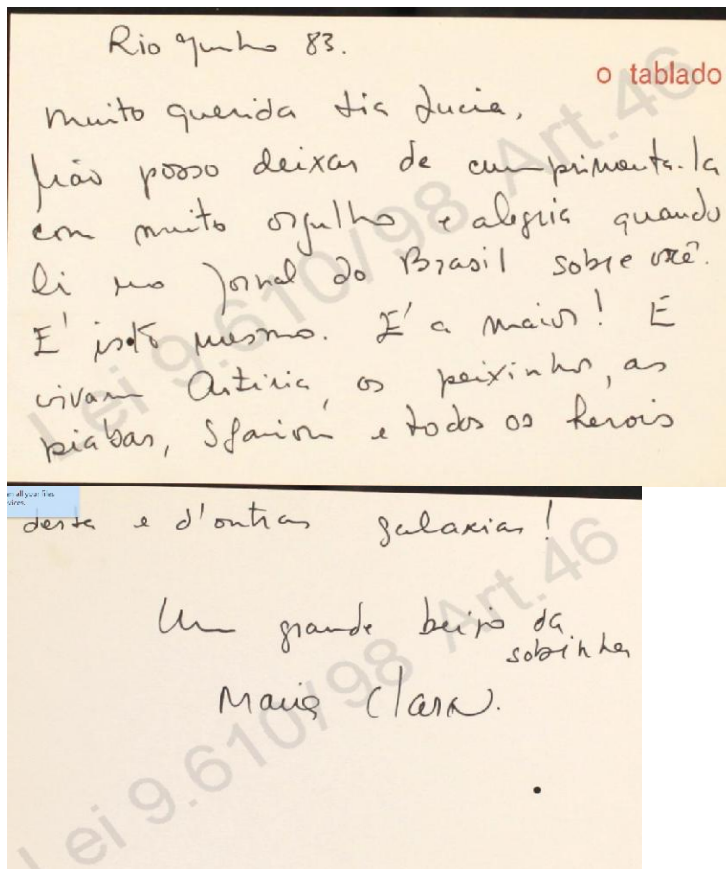 Rio junho 83.
o tablado
Muito querida tia Lucia,
Não posso deixar de cumprimenta-la
com muito orgulho e alegria quando
li no Jornal do Brasil sobre você.
E' isto mesmo. E' a maior! E
vivam os peixinhos, as
piabas, e todos os herois
desta e d'outras galaxias!
Um grande beijo da
sobrinha
Maria Clara.
Lei 9.610/98 Art.46
Lei 9.610/98 Art.46